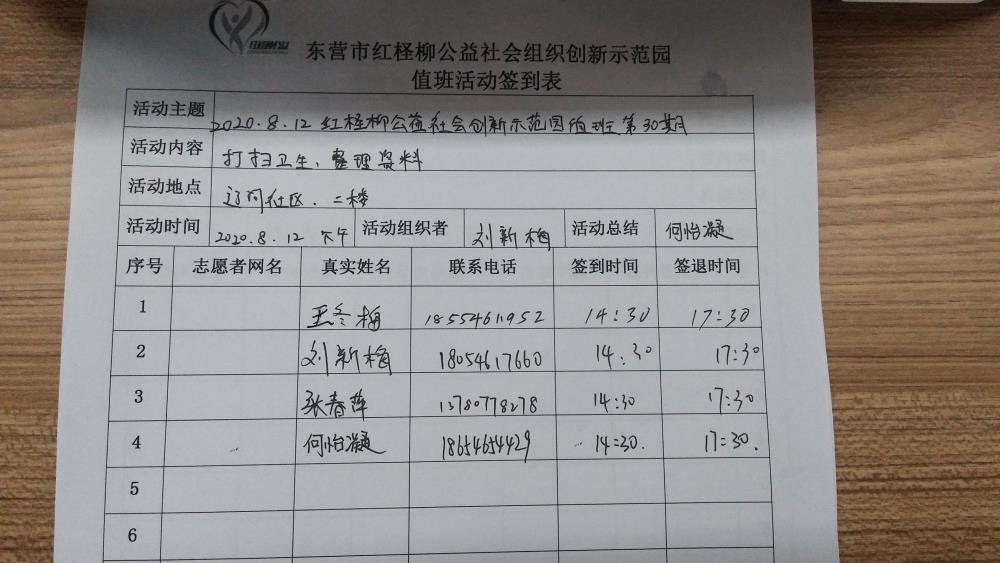 东营市红柽柳公益社会组织创新示范园
值班活动签到表
活动主题 2020.8.12 红柽柳公益社会创新示范园值班第30期
活动内容 打扫卫生、整理资料
活动地点 辽河社区.二楼
活动时间 2020.8.12 下午 活动组织者 刘新梅 活动总结 何怡凝
序号 志愿者网名 真实姓名 联系电话 签到时间 签退时间
1 王冬梅 18554611952 14:30 17:30
2 刘新梅 18054617660 14:30 17:30
3 张春萍 13780778278 14:30 17:30
4 何怡凝 18654654429 14:30. 17:30.
5
6